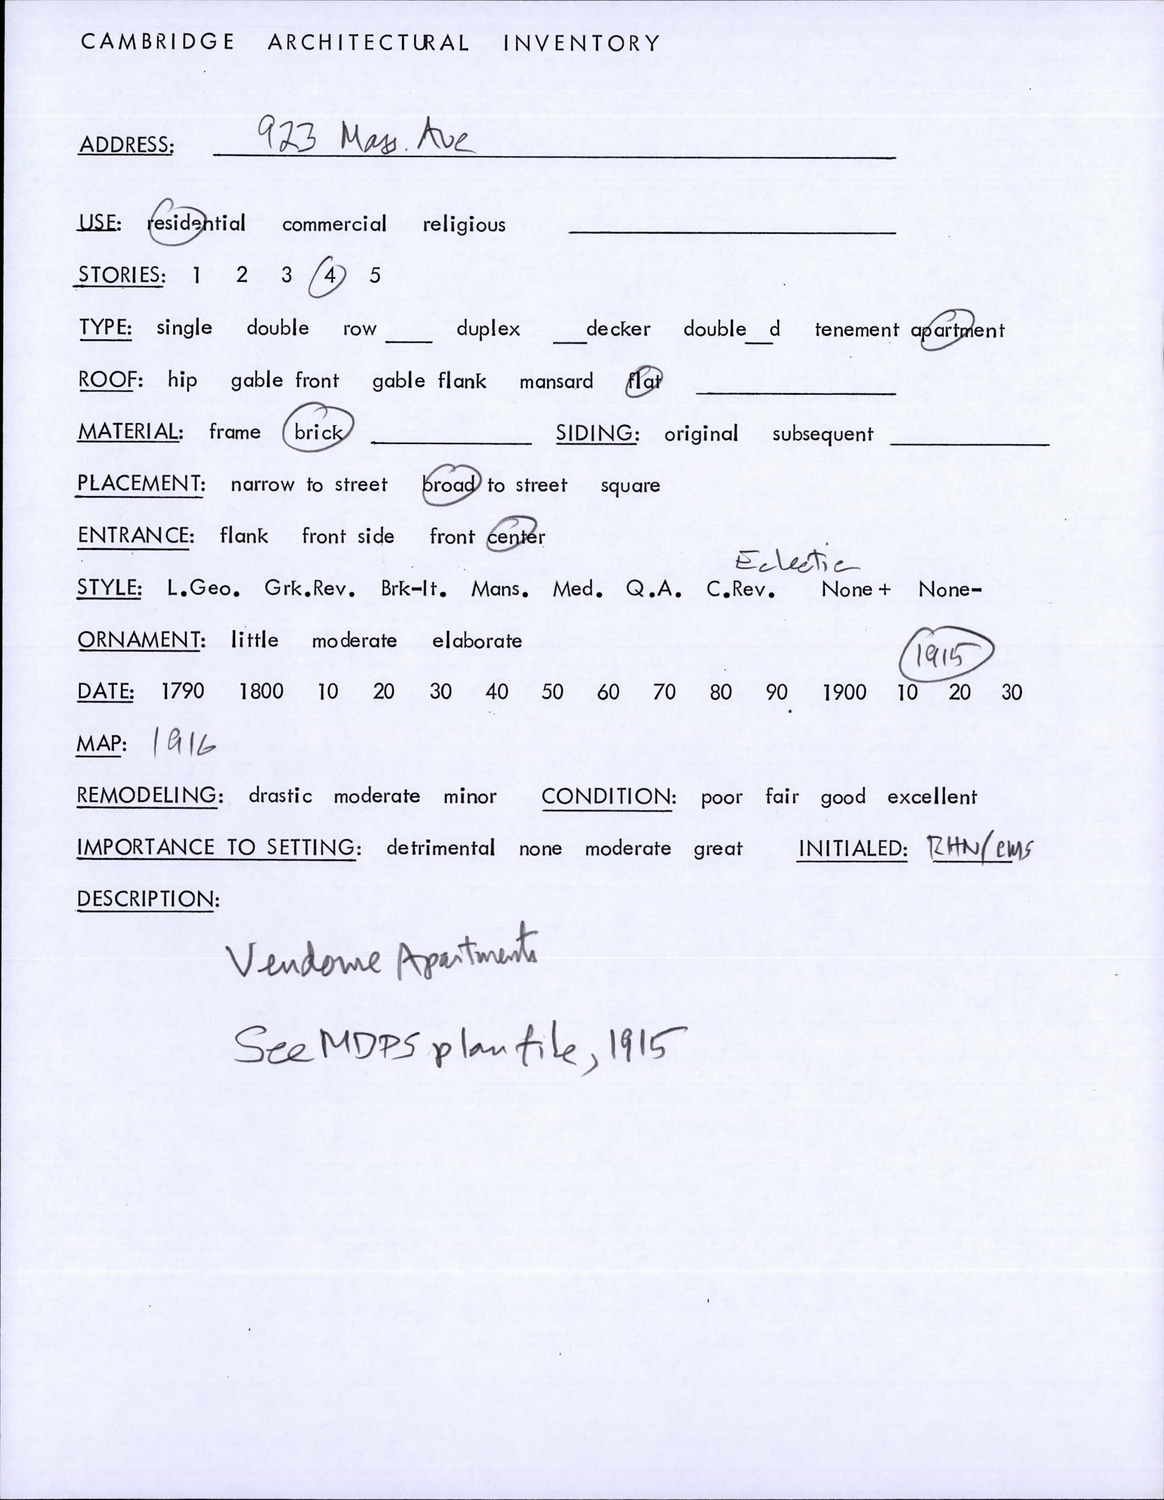 CAMBRIDGE ARCHITECTURAL INVENTORY
ADDRESS: 923 Mass. Ave
USE: residential commercial religious
STORIES: 1 2 3 4 5
TYPE: single double row ___ duplex ___decker double__d tenement apartment
ROOF: hip gable front gable flank mansard flat
MATERIAL: frame brick SIDING: original subsequent
PLACEMENT: narrow to street broad to street square
ENTRANCE: flank front side front center
Eclectic
STYLE: L.Geo. Grk.Rev. Brk-It. Mans. Med. Q.A. C.Rev. None + None-
ORNAMENT: little moderate elaborate
1915
DATE: 1790 1800 10 20 30 40 50 60 70 80 90 1900 10 20 30
MAP: 1916
REMODELING: drastic moderate minor CONDITION: poor fair good excellent
IMPORTANCE TO SETTING: detrimental none moderate great INITIALED: RHN/cms
DESCRIPTION:
Vendome Apartments
See MDPS plan file, 1915